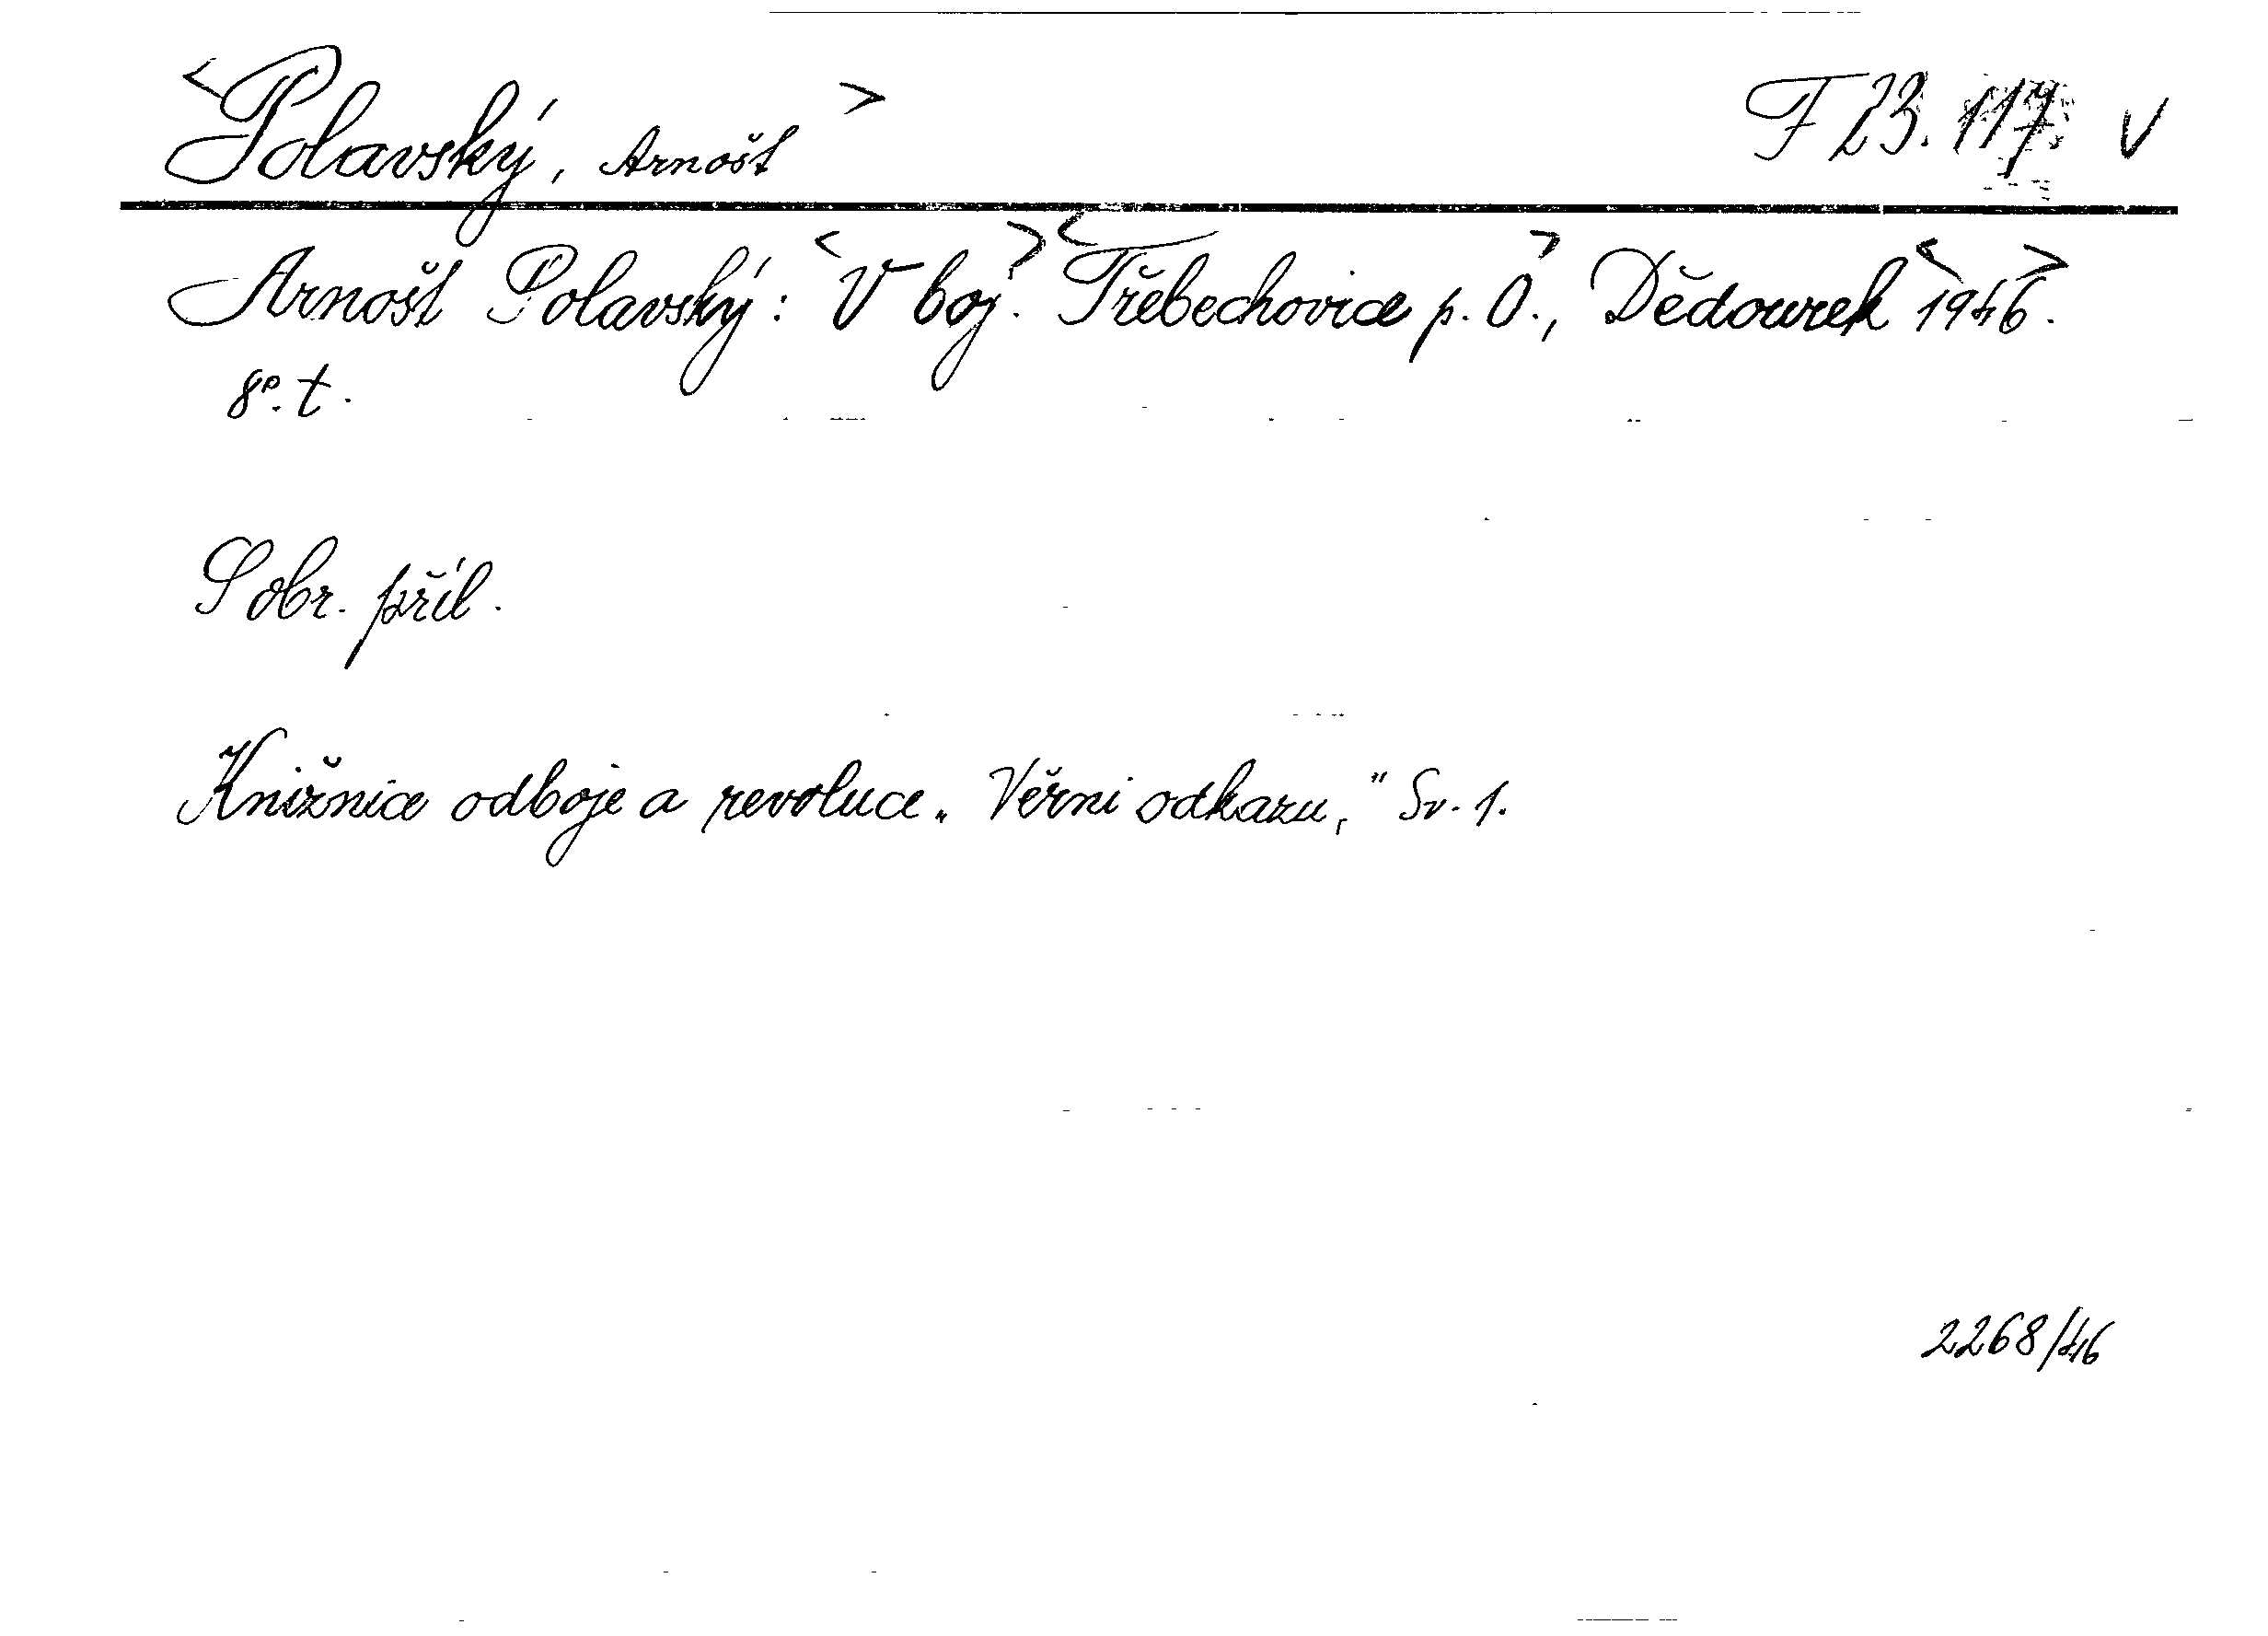 <Polavský, Arnošt> F 23.117. v
Arnošt Polavský: <V boj.> <Třebechovice p. O.>, Dědourek <1946>.
8°. t.
S obr. příl.
Knižnice odboje a revoluce „Věrni odkazu," Sv. 1.
2268/46